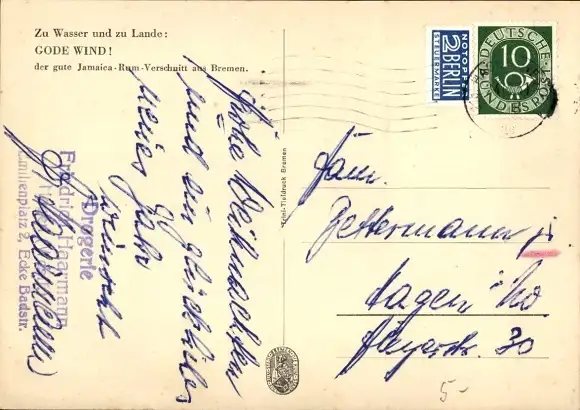 Zu Wasser und zu Lande:
GODE WIND!
der gute Jamaica-Rum-Verschnitt aus Bremen.
Frohe Weihnachten
und ein glückliches
neues Jahr
wünscht
Drogerie
Friedrich Haarmann
Emilienplatz 2, Ecke Badstr.
Tiefdruck Bremen
NOTOPFER
2 BERLIN
STEUERMARKE
DEUTSCHE
10
BUNDESPOST
Fam.
Zettermann jr
Hagen
Fleyerstr. 30
5-